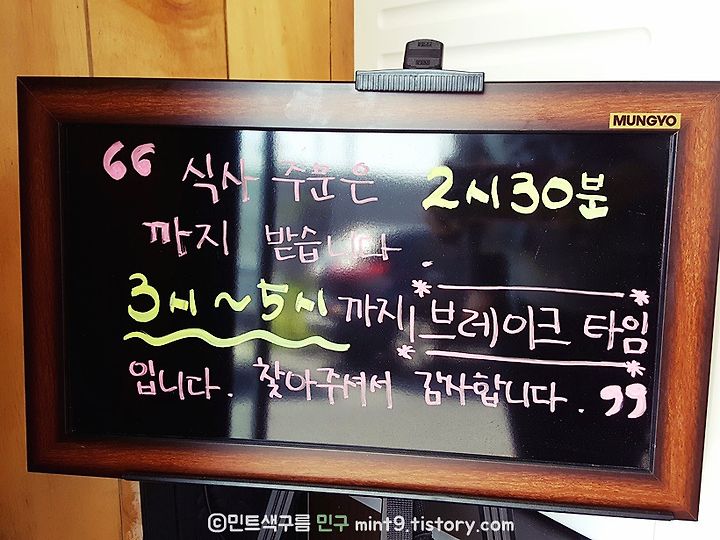 MUNGYO
“ 식사 주문은 2시30분
까지 받습니다.
3시~5시까지 *브레이크 타임*
입니다. 찾아주셔서 감사합니다. ”
©민트색구름 민구 mint9.tistory.com